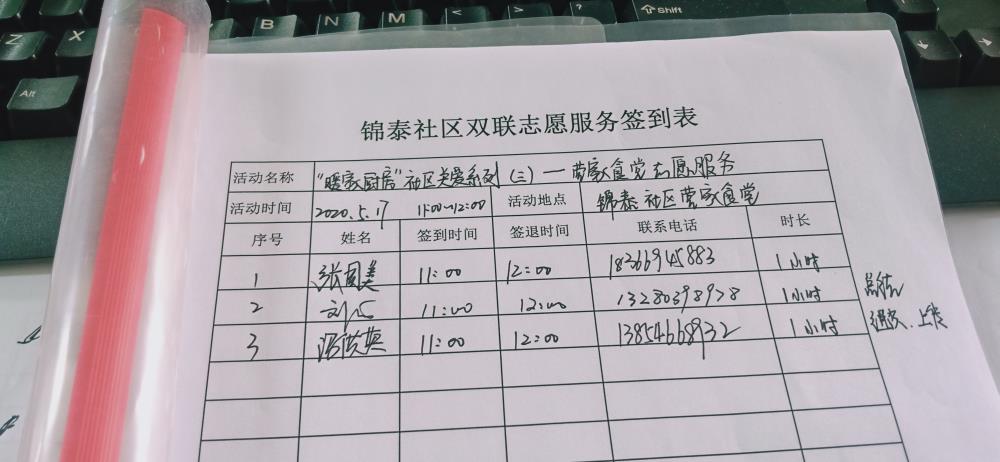 Z X B N M < > ? ⇧Shift
Alt ↓ ↓
锦泰社区双联志愿服务签到表
活动名称 "暖家厨房"社区关爱系列(三)—营家食堂志愿服务
活动时间 2020.5.17 11:00~12:00 活动地点 锦泰社区营家食堂
序号 姓名 签到时间 签退时间 联系电话 时长
1 张国美 11:00 12:00 18366945883 1小时
2 刘心 11:00 12:00 13280398978 1小时
总结
3 英 11:00 12:00 13854668932 1小时